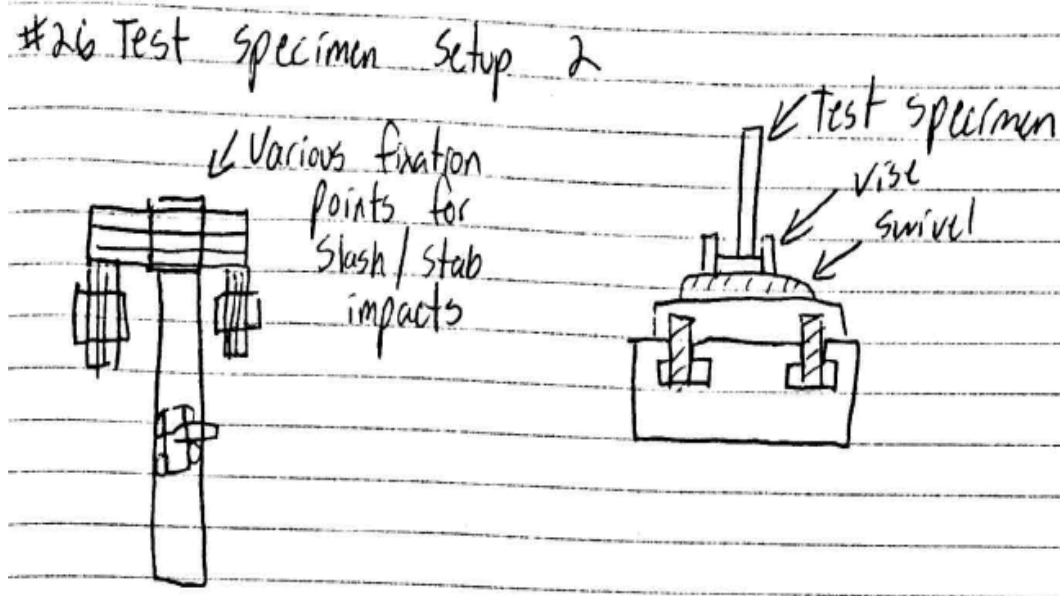 #26 Test specimen setup 2
Various fixation
points for
slash/stab
impacts
Test specimen
vise
swivel